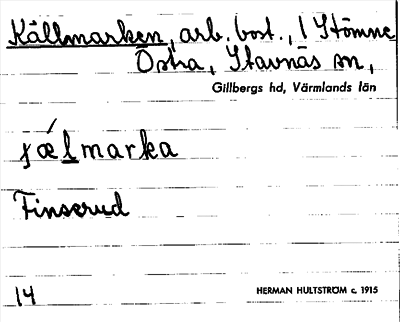 Källmarken, arb. bost., i Stömne
Östra, Stavnäs sn,
Gillbergs hd, Värmlands län
ɟælmarka
Finserud
14
HERMAN HULTSTRÖM c. 1915